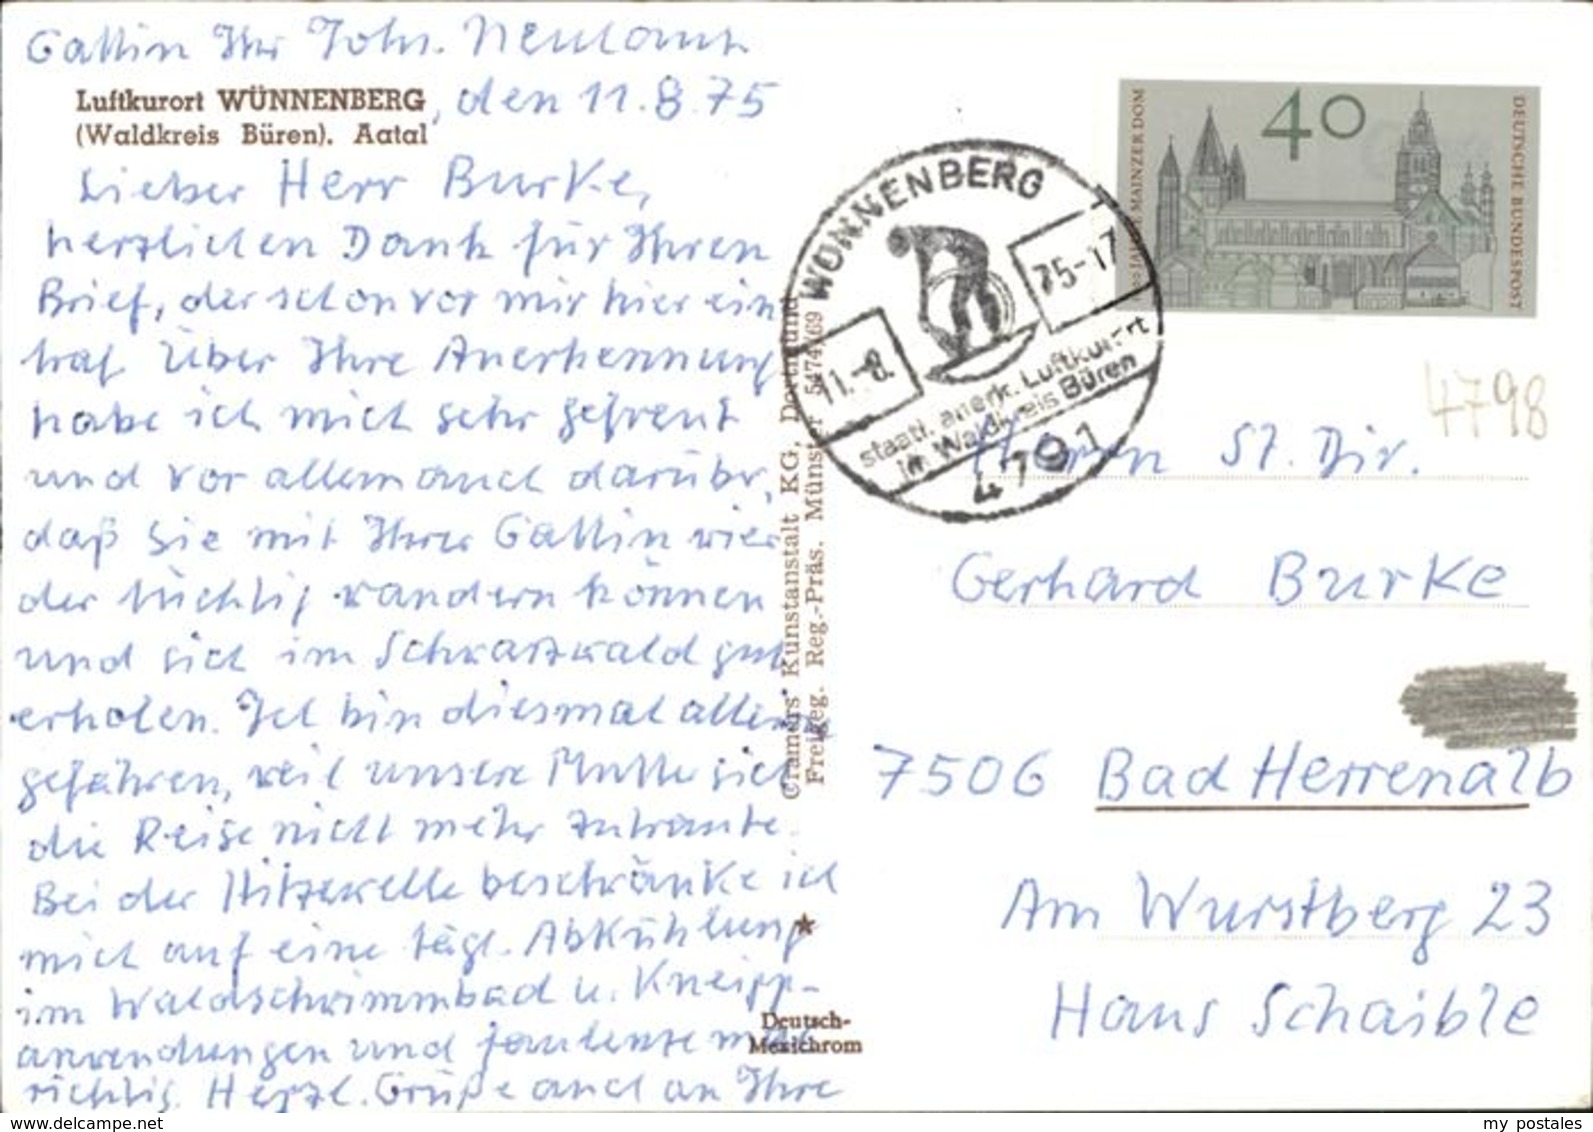 Gattin Ihr Joh. Neulank
Luftkurort WÜNNENBERG, den 11.8.75
(Waldkreis Büren). Aatal
Lieber Herr Burke,
herzlichen Dank für Ihren
Brief, der schon vor mir hier ein
traf. Über Ihre Anerkennung
habe ich mich sehr gefreut
und vor allem auch darüber,
daß Sie mit Ihrer Gattin wie
der tüchtig wandern können
und sich im Schwarzwald gut
erholen. Ich bin diesmal allein
gefahren, weil unsere Mutter sich
die Reise nicht mehr zutraute.
Bei der Hitzewelle beschränke ich
mich auf eine tägl. Abkühlung
im Waldschwimmbad u. Kneipp-
anwendungen und faulenze mal
richtig. Herzl. Grüße auch an Ihre
Cramers Kunstanstalt KG, Dortmund
Freigeg. Reg.-Präs. Münster 5474/69
Deutsch-
Mexichrom
WÜNNENBERG
11.-8. 75-17
staatl. anerk. Luftkurort
im Waldkreis Büren
4791
40
JAHRE MAINZER DOM
DEUTSCHE BUNDESPOST
4798
Herrn St. Dir.
Gerhard Burke
7506 Bad Herrenalb
Am Wurstberg 23
Haus Schaible
akpool.de
my postales